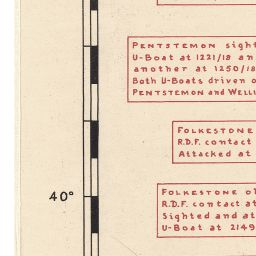 PENTSTEMON sight
U-Boat at 1221/18 an
another at 1250/18
Both U-Boats driven o
PENTSTEMON and WELL
FOLKESTONE
R.D.F. contact
Attacked at
40°
FOLKESTONE
R.D.F. contact at
Sighted and at
U-Boat at 2149